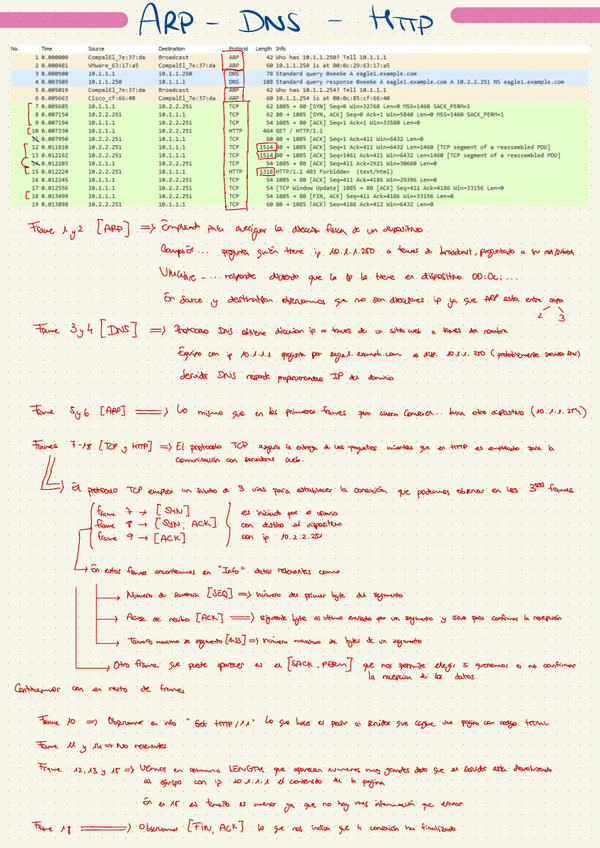 ARP - DNS - HTTP
No. Time Source Destination Protocol Length Info
1 0.000000 CompalEl_7e:37:da Broadcast ARP 42 Who has 10.1.1.250? Tell 10.1.1.1
2 0.000481 VMware_63:17:a5 CompalEl_7e:37:da ARP 60 10.1.1.250 is at 00:0c:29:63:17:a5
3 0.000500 10.1.1.1 10.1.1.250 DNS 78 Standard query 0xee6e A eagle1.example.com
4 0.003509 10.1.1.250 10.1.1.1 DNS 108 Standard query response 0xee6e A eagle1.example.com A 10.2.2.251 NS eagle1.example.com
5 0.005019 CompalEl_7e:37:da Broadcast ARP 42 Who has 10.1.1.254? Tell 10.1.1.1
6 0.005663 Cisco_cf:66:40 CompalEl_7e:37:da ARP 60 10.1.1.254 is at 00:0c:85:cf:66:40
7 0.005685 10.1.1.1 10.2.2.251 TCP 62 1085 → 80 [SYN] Seq=0 Win=32768 Len=0 MSS=1460 SACK_PERM=1
8 0.007154 10.2.2.251 10.1.1.1 TCP 62 80 → 1085 [SYN, ACK] Seq=0 Ack=1 Win=5840 Len=0 MSS=1460 SACK_PERM=1
9 0.007194 10.1.1.1 10.2.2.251 TCP 54 1085 → 80 [ACK] Seq=1 Ack=1 Win=33580 Len=0
10 0.007330 10.1.1.1 10.2.2.251 HTTP 464 GET / HTTP/1.1
0.007950 10.2.2.251 10.1.1.1 TCP 60 80 → 1085 [ACK] Seq=1 Ack=411 Win=6432 Len=0
12 0.011810 10.2.2.251 10.1.1.1 TCP 1514 80 → 1085 [ACK] Seq=1 Ack=411 Win=6432 Len=1460 [TCP segment of a reassembled PDU]
13 0.012162 10.2.2.251 10.1.1.1 TCP 1514 80 → 1085 [ACK] Seq=1461 Ack=411 Win=6432 Len=1460 [TCP segment of a reassembled PDU]
0.012203 10.1.1.1 10.2.2.251 TCP 54 1085 → 80 [ACK] Seq=411 Ack=2921 Win= Len=0
15 0.012224 10.2.2.251 10.1.1.1 HTTP 1318 HTTP/1.1 403 Forbidden (text/html)
16 0.012245 10.1.1.1 10.2.2.251 TCP 54 1085 → 80 [ACK] Seq=411 Ack=4186 Win=29396 Len=0
17 0.012556 10.1.1.1 10.2.2.251 TCP 54 [TCP Window Update] 1085 → 80 [ACK] Seq=411 Ack=4186 Win=33156 Len=0
18 0.013499 10.1.1.1 10.2.2.251 TCP 54 1085 → 80 [FIN, ACK] Seq=411 Ack=4186 Win=33156 Len=0
19 0.013898 10.2.2.251 10.1.1.1 TCP 60 80 → 1085 [ACK] Seq=4186 Ack=412 Win=6432 Len=0
Frame 1 y 2 [ARP] => Empleado para averiguar la dirección física de un dispositivo
... pregunta quién tiene ip 10.1.1.250 a traves de broadcast, preguntado a su red/subred
VMWare ... responde diciendo que la ip la tiene en dispositivo 00:0c:...
En source y destination observamos que no son direcciones ip ya que ARP esta entre capa
2 3
Frame 3 y 4 [DNS] => Protocolo DNS obtiene direccion ip a traves de un sitio web a traves de nombre
Equipo con ip 10.1.1.1 pregunta por eagle1.example.com a disp. 10.1.1.250 (probablemente servidor DNS)
Servidor DNS responde proporcionandole IP del dominio
Frame 5 y 6 [ARP] => Lo mismo que en los primeros frames pero ahora hacia otro dispositivo (10.1.1.254)
Frames 7-18 [TCP y HTTP] => El protocolo TCP asegura la entrega de los paquetes mientras que el HTTP es empleado para la
comunicación con servidores web.
El protocolo TCP emplea un saludo de 3 vias para establecer la conexión que podemos observar en los 3 frames
frame 7 → [SYN] es iniciado por el usuario
frame 8 → [SYN, ACK] con destino al dispositivo
frame 9 → [ACK] con ip 10.2.2.251
En estos frames encontramos en "Info" datos relevantes como
Número de secuencia [SEQ] => número del primer byte del segmento
Acuse de recibo [ACK] => siguiente byte al ultimo enviado por un segmento y sirve para confirmar la recepción
Tamaño maximo de segmento [MSS] => número maximo de bytes de un segmento
Otro frame que puede aparecer es el [SACK_PERM] que nos permite elegir si queremos o no confirmar
la recepcion de los datos
Continuemos con el resto de frames
Frame 10 => Observamos en info "Get HTTP/1.1" Lo que hace es pedir al servidor que cargue una pagina con codigo HTML
Frame 11 y 14 => No relevantes
Frame 12,13 y 15 => Vemos en columna LENGTH que aparecen numeros muy grandes dado que el servidor esta devolviendo
al equipo con ip 10.1.1.1 el contenido de la pagina
En el 15 el tamaño es menor ya que no hay mas informacion que enviar
Frame 18 => Observamos [FIN, ACK] lo que nos indica que la conexión ha finalizado